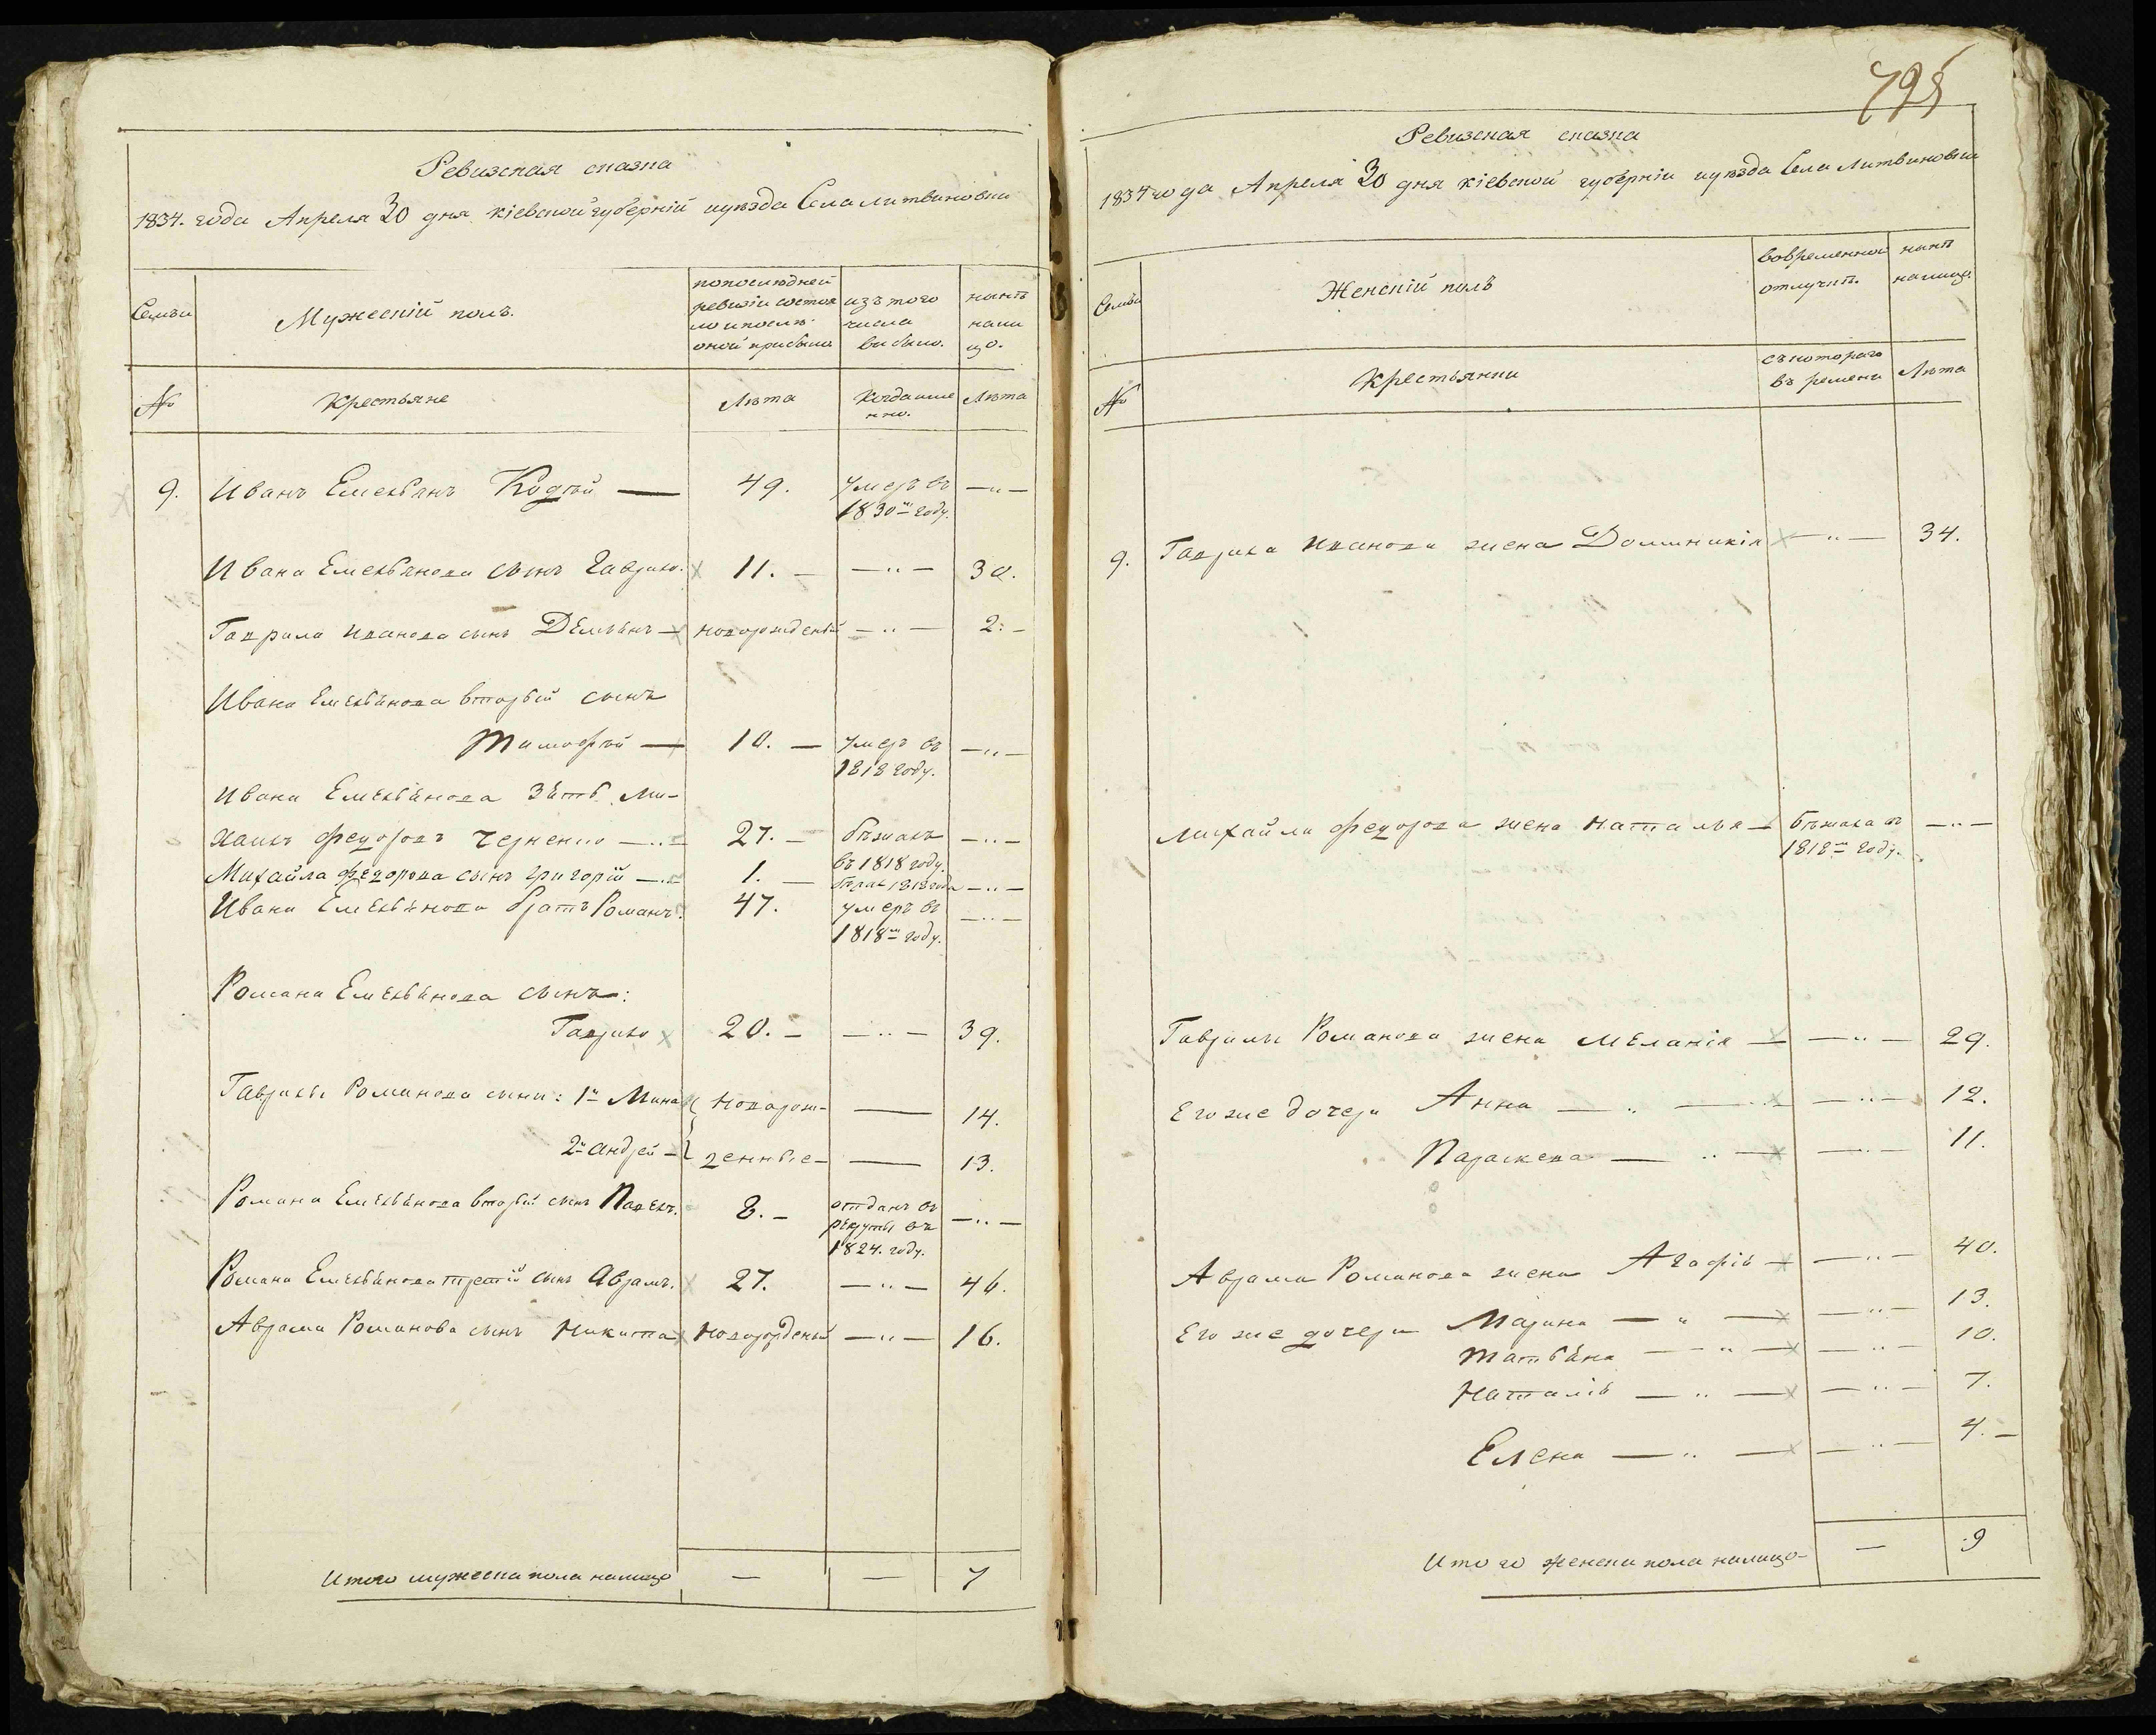 Ревизская сказка
1834. года Апреля 30 дня кіевской губерній иуѣзда Села Литвиновки
Семьи
Мужескій полъ.
попослѣдней
ревизіи состоя
ло ипослѣ
оной прибыло
изъ того
числа
выбыло.
нынѣ
нали
цо.
№
Крестьяне
Лѣта
Когдаиме
нно.
Лѣта
9. Иванъ Емельянъ Кодѣй — 49. умеръ въ —„—
1830м году.
Ивана Емельянова сынъ Гаврило. 11. — —„— 30.
Гаврила Иванова сынъ Демьянъ — новорожденый —„— 2. —
Ивана Емельянова вторый сынъ
Тимофѣй — 10. — умеръ въ —„—
1818 году.
Ивана Емельянова зять Ми-
хаилъ федоровъ Черненко —„— 27. — бѣжалъ —„—
въ 1818 году.
Михайла федорова сынъ григорій —„— 1. — 1818 года —„—
Ивана Емельянова братъ Романъ. 47. умеръ въ —„—
1818м году.
Романа Емельянова сынъ:
Гаврило 20. — —„— 39.
Гаврилы Романова сыни: 1й Мина новорож- — 14.
2й андрей — денные — — 13.
Романа Емельянова вторый сынъ Павелъ. 8. — отданъ въ —„—
рекруты въ
1824. году.
Романа Емельянова третій сынъ Аврамъ. 27. —„— 46.
Аврама Романова сынъ Никита новорожденый —„— 16.
Итого мужеска пола налицо — — 7
795
Ревизская сказка
1834 года Апреля 30 дня кіевской губерніи иуѣзда Села Литвиновки
Семьи
Женскій полъ
вовременной
отлучкѣ.
нынѣ
налицо.
№
Крестьянки
съкотораго
времени
Лѣта
9. Гаврила Иванова жена Доминикія —„— 34.
Михайла федорова жена Наталья — бѣжала въ —„—
1818м году.
Гаврилы Романова жена Меланія — —„— 29.
Его же дочери Анна —„— —„— 12.
Параскева —„— —„— 11.
Аврама Романова жена Агафія — —„— 40.
Его же дочери Марина —„— —„— 13.
Татьяна —„— —„— 10.
Наталія —„— —„— 7.
Елена —„— —„— 4. —
Итого женска пола налицо — — 9